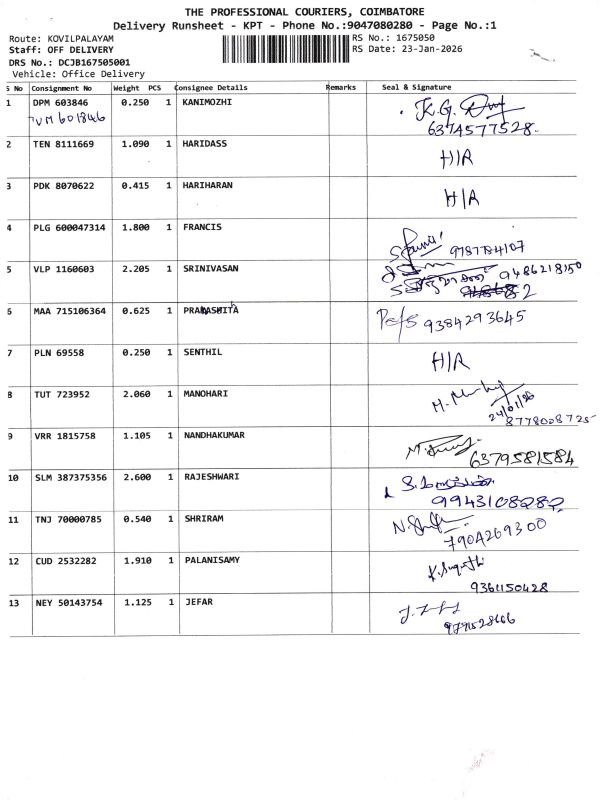 THE PROFESSIONAL COURIERS, COIMBATORE
Delivery Runsheet - KPT - Phone No.:9047080280 - Page No.:1
Route: KOVILPALAYAM
RS No.: 1675050
Staff: OFF DELIVERY
RS Date: 23-Jan-2026
DRS No.: DCJB167505001
Vehicle: Office Delivery
S No Consignment No Weight PCS Consignee Details Remarks Seal & Signature
1 DPM 603846 0.250 1 KANIMOZHI
TVM 601846
6374577528
2 TEN 8111669 1.090 1 HARIDASS H/R
3 PDK 8070622 0.415 1 HARIHARAN H/R
4 PLG 600047314 1.800 1 FRANCIS
9787784107
5 VLP 1160603 2.205 1 SRINIVASAN
9486218150
6 MAA 715106364 0.625 1
9384293645
7 PLN 69558 0.250 1 SENTHIL H/R
8 TUT 723952 2.060 1 MANOHARI
24/01/26
8778008725
9 VRR 1815758 1.105 1 NANDHAKUMAR
6379581584
10 SLM 387375356 2.600 1 RAJESHWARI
9943108282
11 TNJ 70000785 0.540 1 SHRIRAM
7904269300
12 CUD 2532282 1.910 1 PALANISAMY
9361150428
13 NEY 50143754 1.125 1 JEFAR